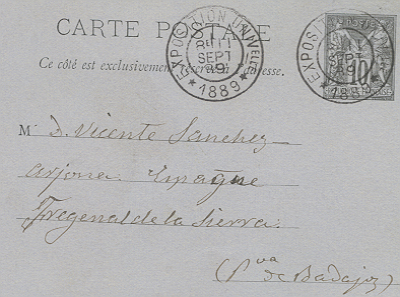 CARTE POSTALE
Ce côté est exclusivement réservé à l'adresse.
EXPOSITION UNIVELLE
SEPT
89
★ 1889 ★
EXPOSITION
SEPT
89
1889
10
M D. Vicente Sanchez
Arjona. Espagne
Fregenal de la Sierra.
(Pva de Badajoz)